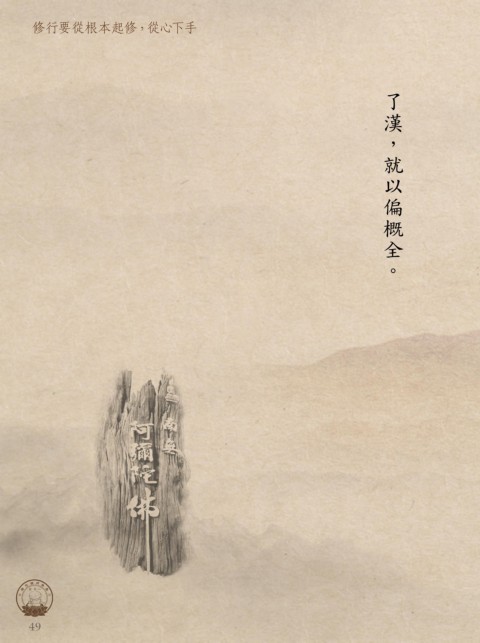 修行要從根本起修，從心下手
了漢，就以偏概全。
南無
阿彌陀佛
49